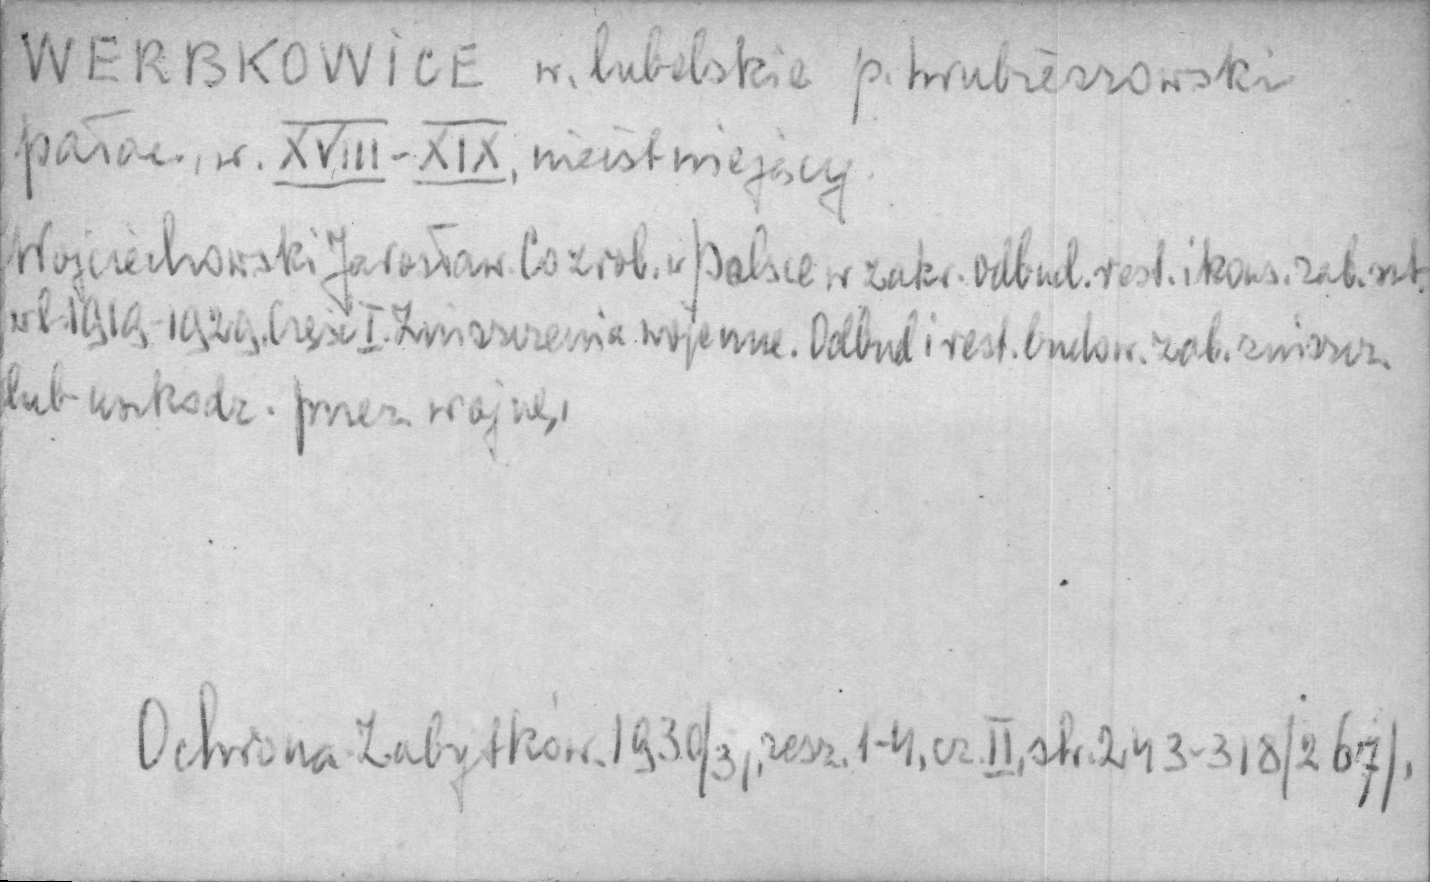 WERBKOWICE w. lubelskie p. hrubieszowski
pałac, w. XVIII-XIX, nieistniejący.
Wojciechowski Jarosław. Co zrob. w Polsce w zakr. odbud. rest. i kons. zab. szt.
w l. 1919-1929. Część I. Zniszczenia wojenne. Odbud i rest. budow. zab. zniszcz.
lub uszkodz. przez wojnę,
Ochrona Zabytków. 1930/31, zesz. 1-4, cz. II, str. 243-318/267/,